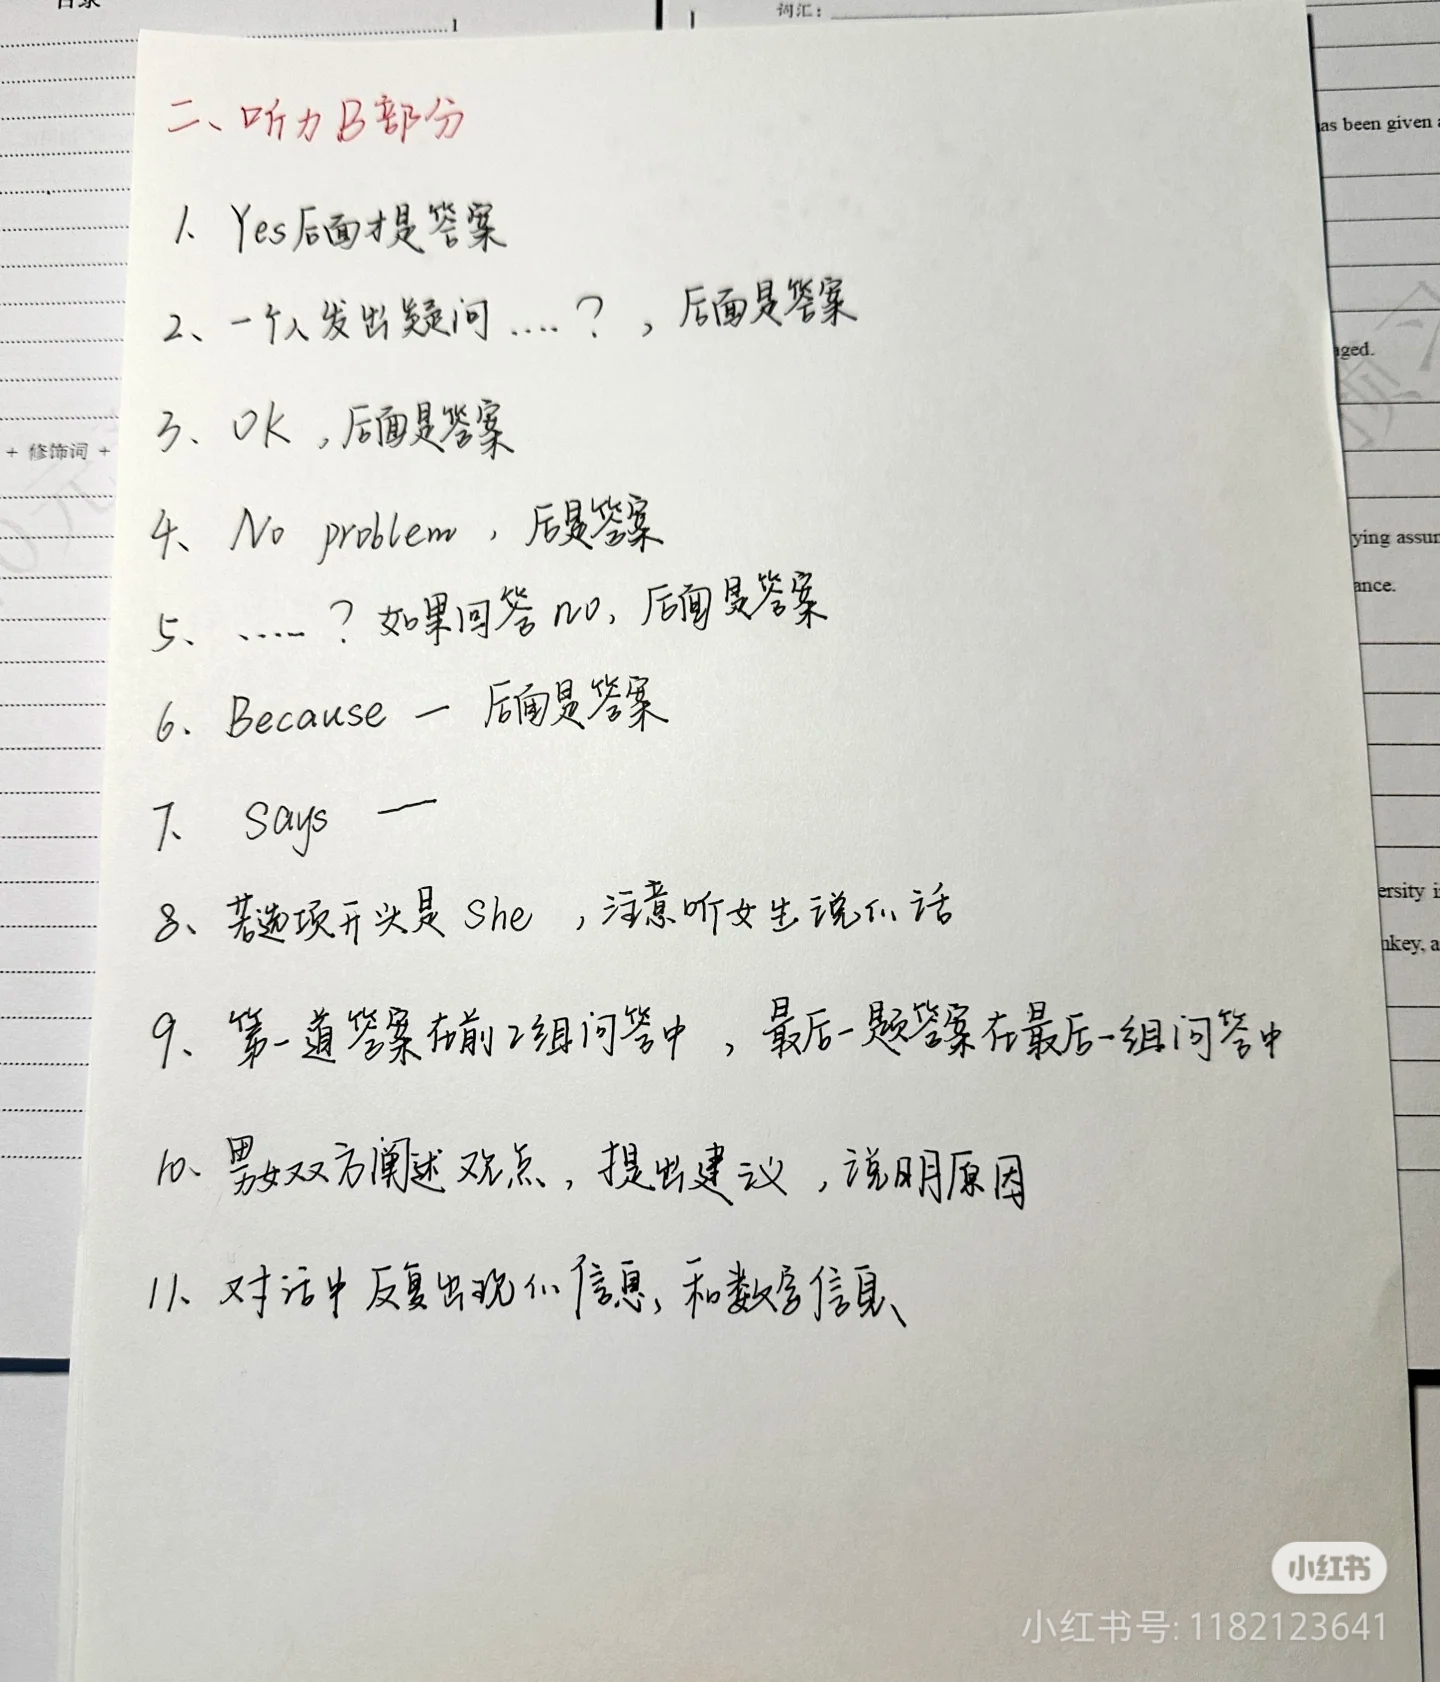 目录
1
词汇：
二、听力B部分
as been given a
1、Yes后面才是答案
2、一个人发出疑问....？，后面是答案
aged.
3、OK，后面是答案
+ 修饰词 +
4、No problem，后是答案
ying assum
ance.
5、.....？如果回答no，后面是答案
6. Because — 后面是答案
7、says —
8、若选项开头是She，注意听女生说的话
ersity i
nkey, a
9、第一道答案在前2组问答中，最后一题答案在最后一组问答中
10、男女双方阐述观点，提出建议，说明原因
11、对话中反复出现的信息，和数字信息、
小红书
小红书号: 1182123641